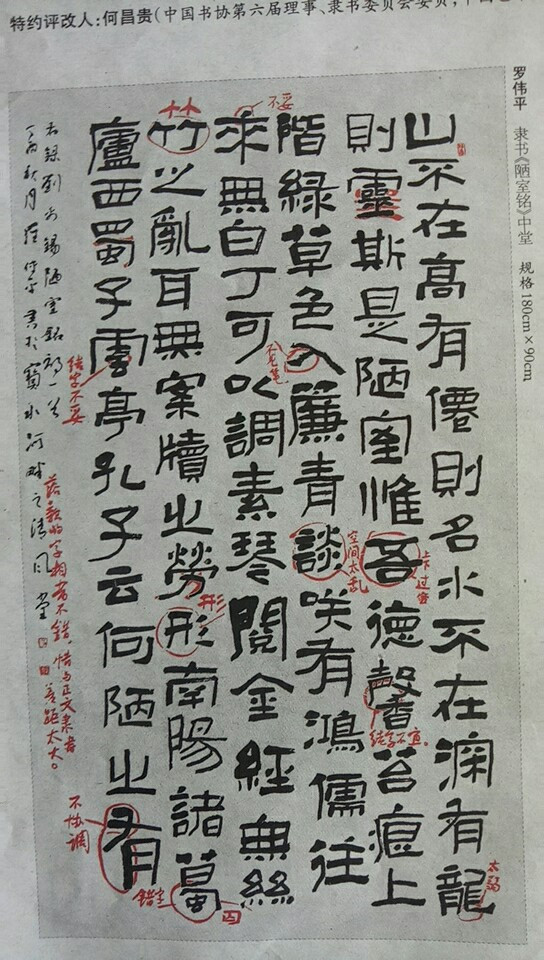 特约评改人:何昌贵(中国书协第六届理事、隶书委员会委员,中国
罗伟平 隶书《陋室铭》中堂 规格180cm×90cm
山不在高有僊則名水不在深有龍
則靈斯是陋室惟吾德馨苔痕上
階綠草色入簾青談咲有鴻儒往
來無白丁可以調素琴閱金經無絲
竹之亂耳無案牘之勞形南陽諸葛
廬西蜀子雲亭孔子云何陋之有
右錄劉禹錫陋室銘詞一首
丁酉秋月 書於寶水河畔之清風堂
不妥
空间太乱
结字不宜
太弱
形
错字
结字不妥
不协调
落款的字相当不错,惜与正文来者
差距太大。